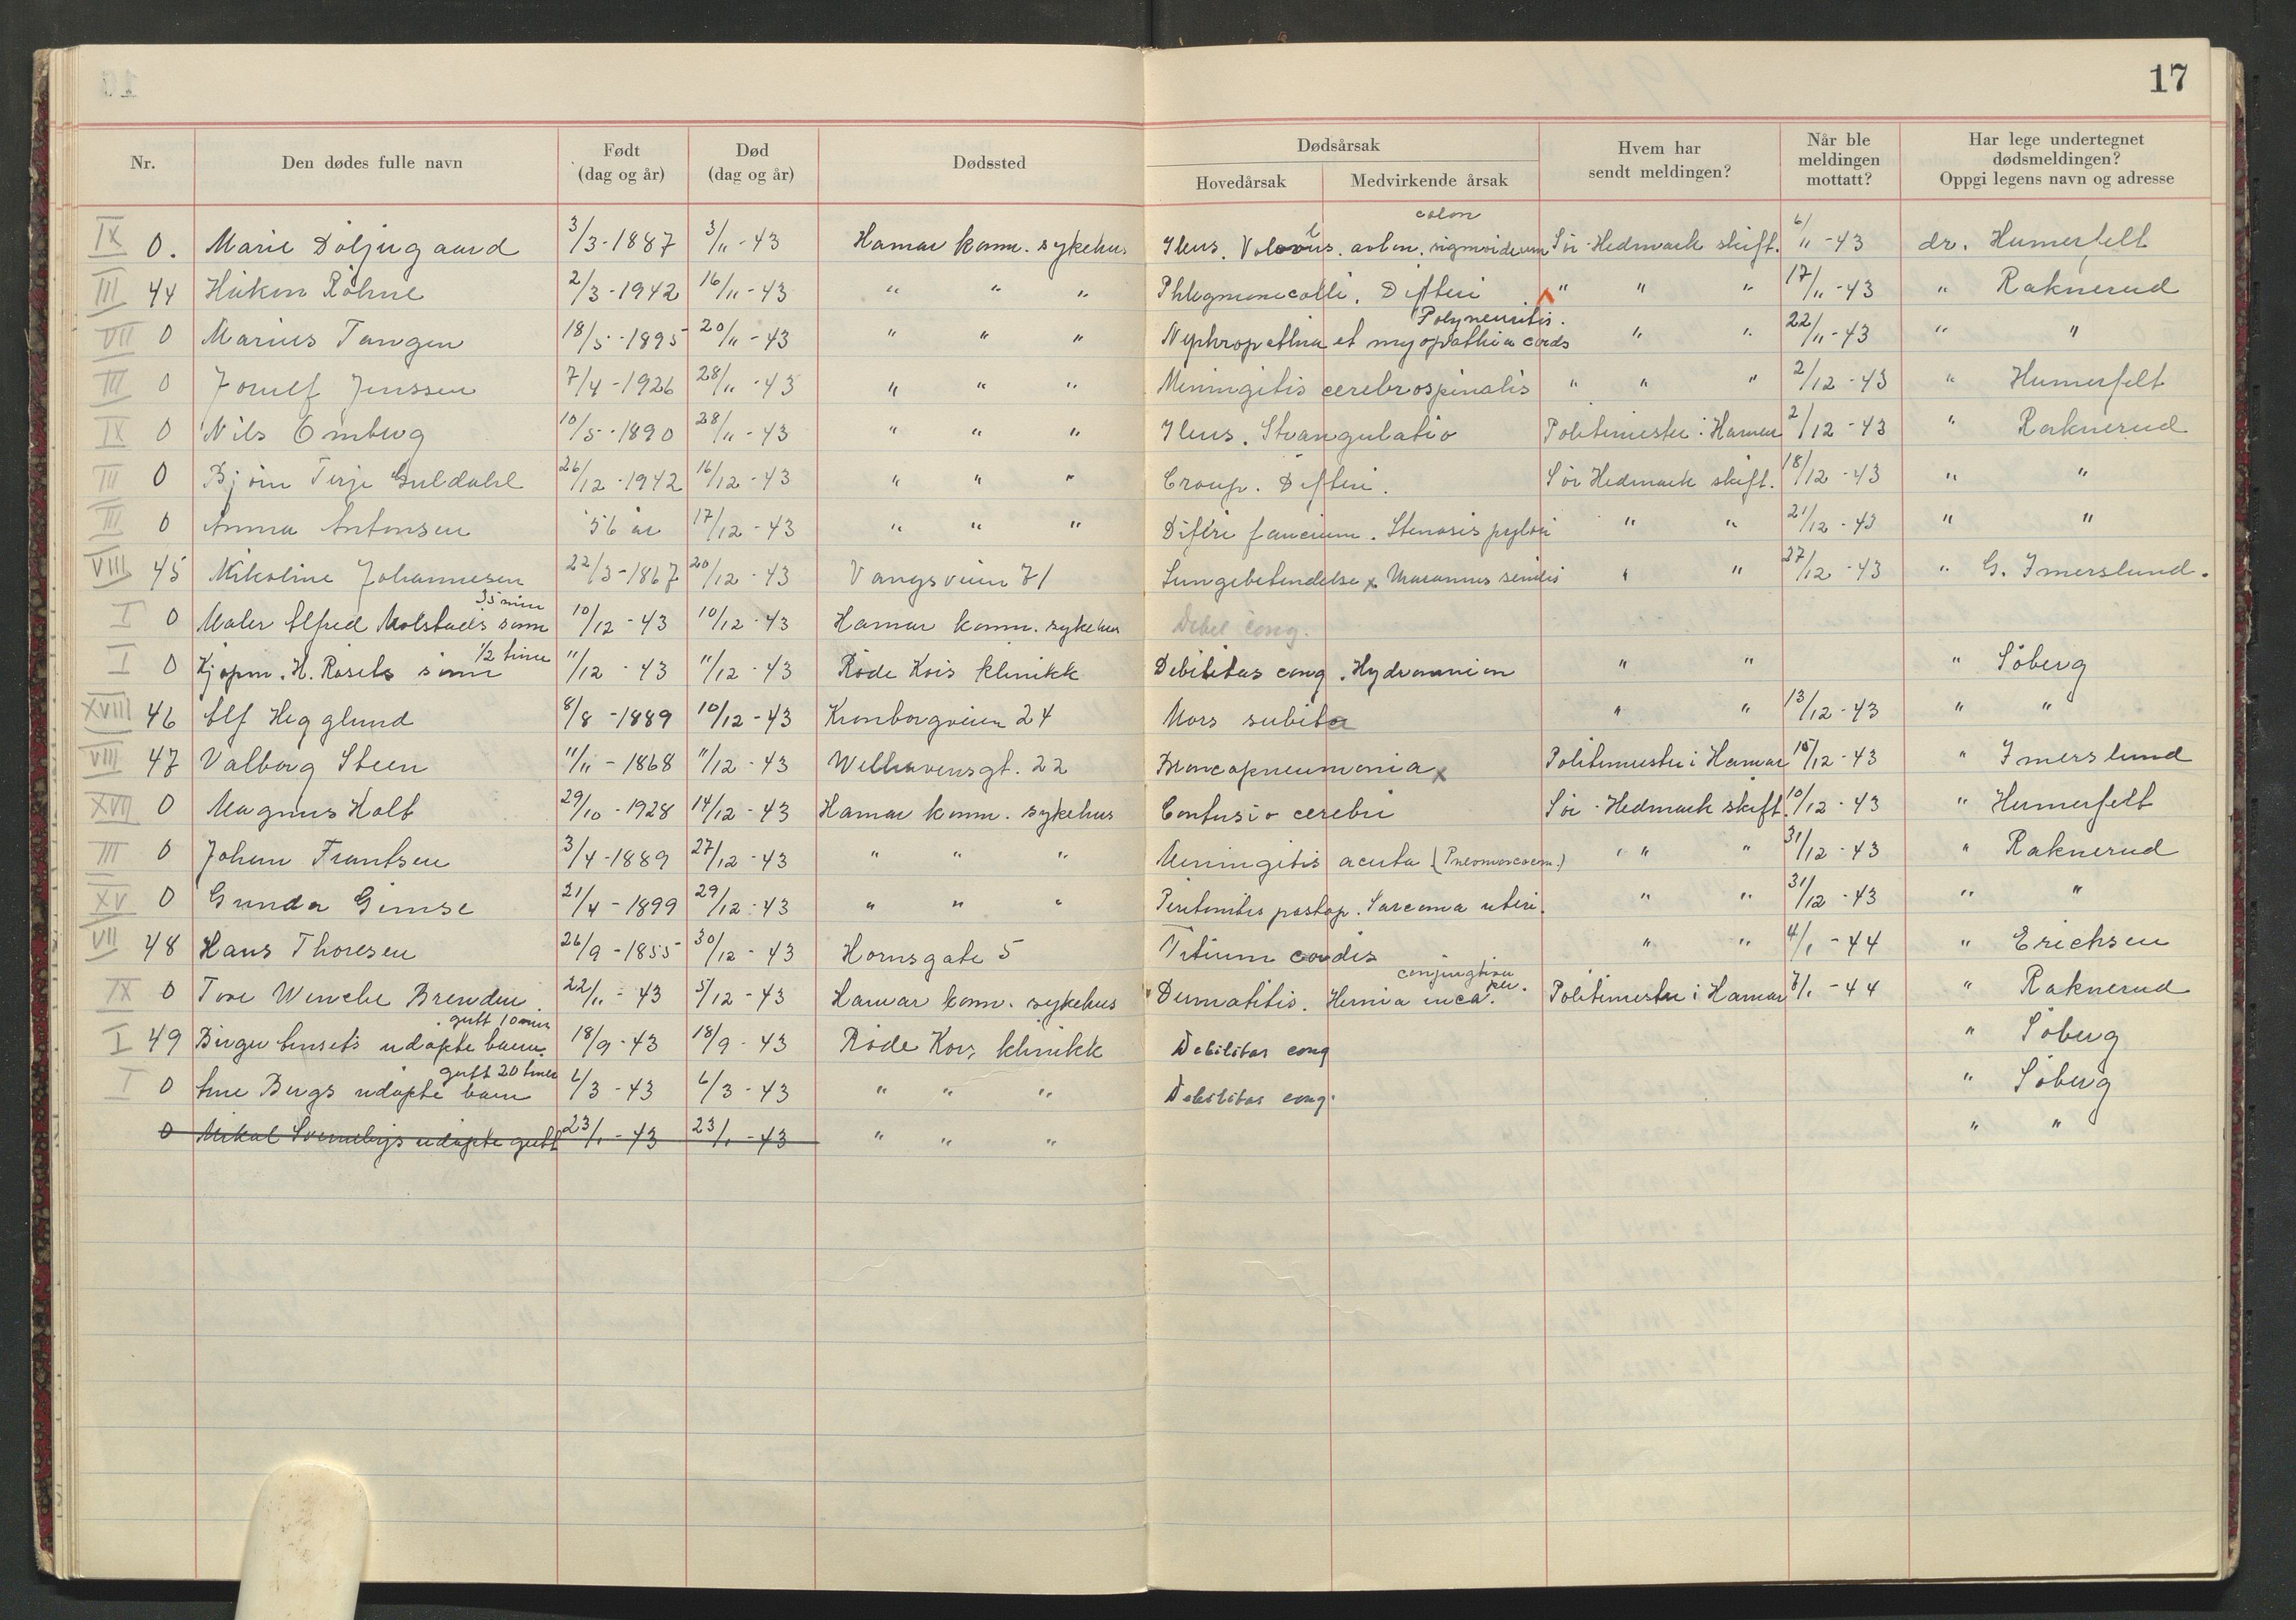 17
Nr. Den dødes fulle navn Født (dag og år) Død (dag og år) Dødssted Dødsårsak Hovedårsak Medvirkende årsak Hvem har sendt meldingen? Når ble meldingen mottatt? Har lege undertegnet dødsmeldingen? Oppgi legens navn og adresse
colon
IX 0. Marie Døljugaard 3/3-1887 3/11-43 Hamar komm. sykehus Ileus. Volvulus. sigmoideum Sör-Hedmark skift. 6/11-43 dr. Humerfelt
III 44 Håkon Röhne 2/3-1942 16/11-43 " " " Phlegmone colli. Difteri " " " 17/11-43 " Raknerud
Polyneuritis.
VII 0 Marius Tangen 18/5-1895 20/11-43 " " " Nephropathia et myopathia cords " " 22/11-43 " "
III 0 Jorulf Jenssen 7/4-1926 28/11-43 " " " Meningitis cerebrospinalis " " " 2/12-43 " Humerfelt
IX 0 Nils Omberg 10/5-1890 28/11-43 " " " Ileus. Strangulatio Politimester i Hamar 2/12-43 " Raknerud
III 0 Bjørn Terje Guldahl 26/12-1942 16/12-43 " " " Croup. Difteri. Sör Hedmark skift. 18/12-43 " "
III 0 Anna Antonsen 56 år 17/12-43 " " " Difteri faucium. Stenosis pylori " " 21/12-43 " "
VIII 45 Nikoline Johannesen 22/3-1867 20/12-43 Vangsveien 71 Lungebetendelse x Marasmus senilis " " 27/12-43 " G. Imerslund.
35 min
I 0 Maler Alfred Molstads sønn 10/12-43 10/12-43 Hamar komm. sykehus Debil cong.
1/2 time
I 0 Kjøpm. H. Rosets sønn 11/12-43 11/12-43 Röde Kors klinikk Debilitas cong. Hydramnion " " " Söberg
XVIII 46 Alf Hegglund 8/8-1889 10/12-43 Kronborgveien 24 Mors subita " " 13/12-43 " "
VIII 47 Valborg Steen 11/11-1868 11/12-43 Welhavensgt. 22 Broncopneumonia x Politimester i Hamar 15/12-43 " Imerslund
XVII 0 Magnus Holt 29/10-1928 14/12-43 Hamar komm. sykehus Contusio cerebri Sör-Hedmark skift. 10/12-43 " Humerfelt
III 0 Johan Frantsen 3/4-1889 27/12-43 " " " Meningitis acuta (Pneumococc.) " " " 31/12-43 " Raknerud
XV 0 Gunda Gimse 21/4-1899 29/12-43 " " " Peritonitis postop. Sarcoma uteri. " " 31/12-43 " "
VII 48 Hans Thoresen 26/9-1855 30/12-43 Hornsgate 5 Vitium cordis " " 4/1-44 " Erichsen
IX 0 Tove Wenche Brenden 22/11-43 5/12-43 Hamar komm. sykehus Dermatitis. Hernia inca. Politimester i Hamar 7/1-44 " Raknerud
gutt 10 min
I 49 Birger Aensets udøpte barn. 18/9-43 18/9-43 Röde Kors klinikk Debilitas cong " Söberg
gutt 20 timer
I 0 Arne Bergs udøpte barn 6/3-43 6/3-43 " " " Debilitas cong. " Söberg
0 Mikal udøpte gutt 23/1-43 23/1-43 " " " " "